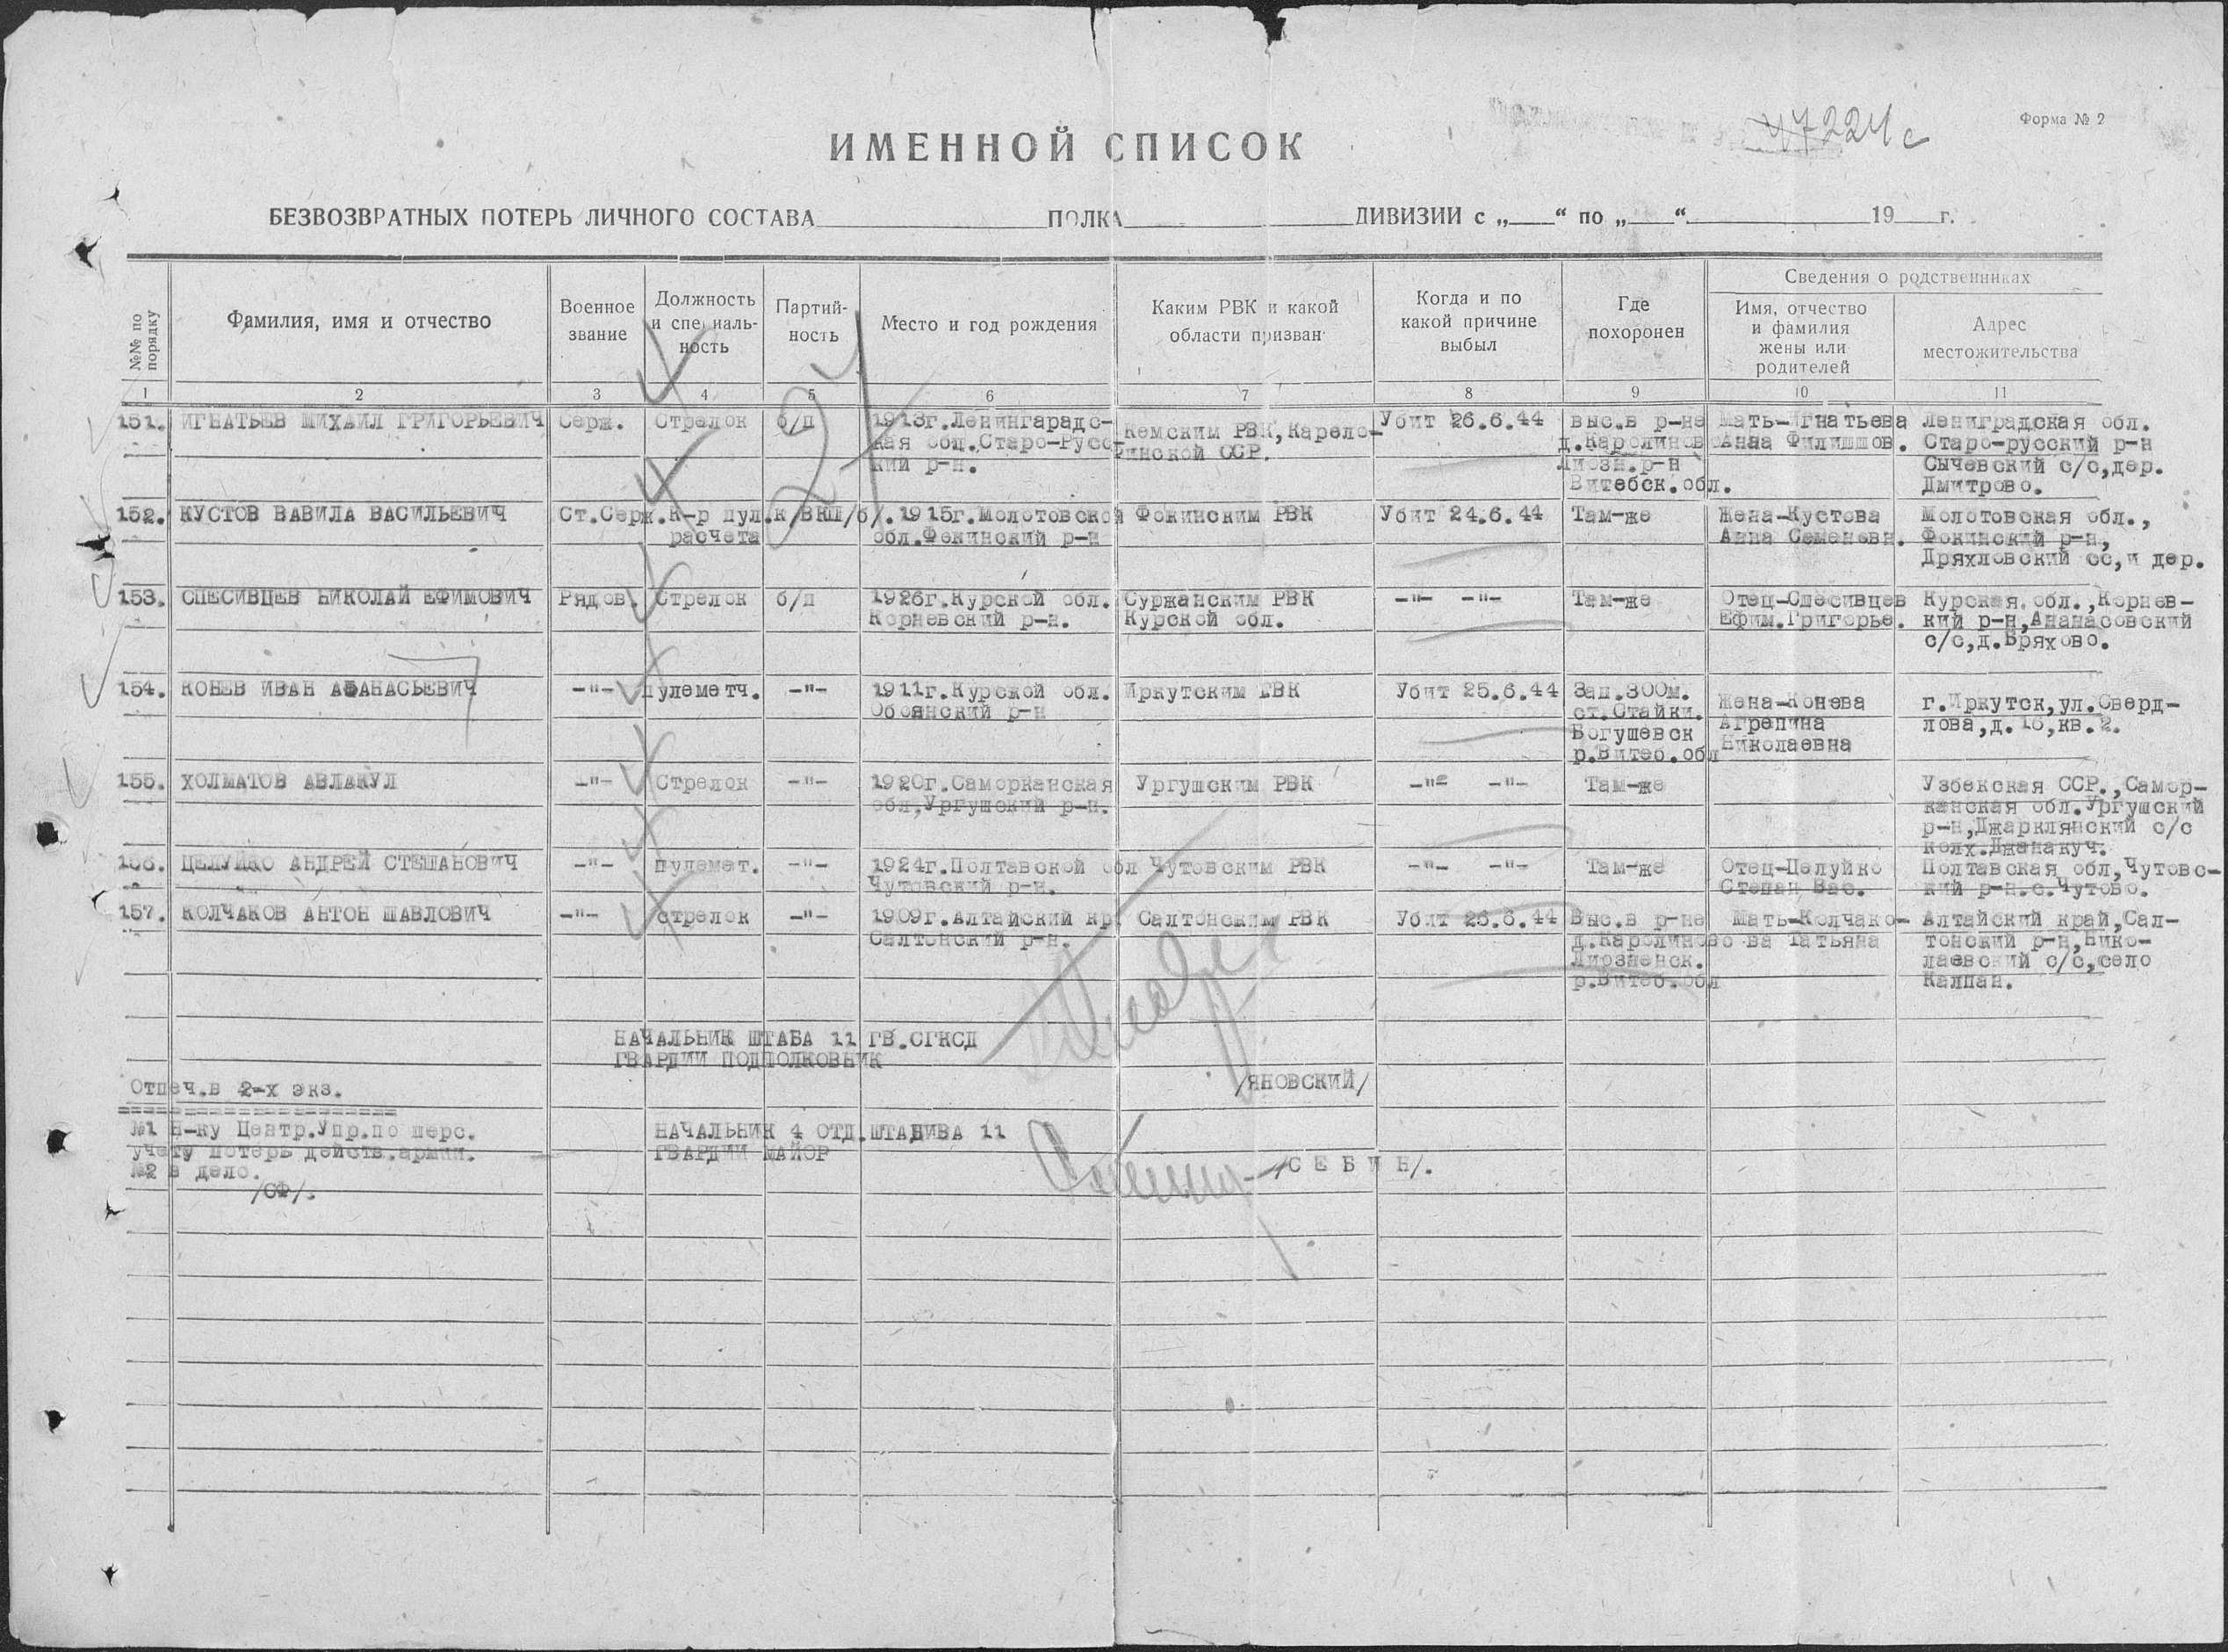 47224с
Форма № 2
ИМЕННОЙ СПИСОК
БЕЗВОЗВРАТНЫХ ПОТЕРЬ ЛИЧНОГО СОСТАВА ПОЛКА ДИВИЗИИ с „ “ по „ “ 19 г.
№№ по порядку
Фамилия, имя и отчество
Военное звание
Должность и специальность
Партийность
Место и год рождения
Каким РВК и какой области призван
Когда и по какой причине выбыл
Где похоронен
Сведения о родственниках
Имя, отчество и фамилия жены или родителей
Адрес местожительства
1 2 3 4 5 6 7 8 9 10 11
151. ИГНАТЬЕВ МИХАИЛ ГРИГОРЬЕВИЧ Серж. Стрелок б/п 1913г.Ленингарадс- Кемским РВК,Карело- Убит 26.6.44 выс.в р-не Мать-Игнатьева Лениградская обл.
кая обл.Старо-Русс- Финской ССР. д.Каролиново Анна Филиппов. Старо-русский р-н
кий р-н. Лиозн.р-н Сычевский с/с,дер.
Витебск.обл. Дмитрово.
152. КУСТОВ ВАВИЛА ВАСИЛЬЕВИЧ Ст.Серж. К-р пул. к/ВКП/б/. 1915г.Молотовской Фокинским РВК Убит 24.6.44 Там-же Жена-Кустова Молотовская обл.,
расчета обл.Фокинский р-н Анна Семеновн. Фокинский р-н,
Дряхловский сс,и дер.
153. СПЕСИВЦЕВ НИКОЛАЙ ЕФИМОВИЧ Рядов. Стрелок б/п 1926г.Курской обл. Суржанским РВК -"- -"- Там-же Отец-Спесивцев Курская.обл.,Корнев-
Корневский р-н. Курской обл. Ефим.Григорье. кий р-н,Ананасовский
с/с,д.Бряхово.
154. КОНЕВ ИВАН АФАНАСЬЕВИЧ -"- Пулеметч. -"- 1911г.Курской обл. Иркутским РВК Убит 25.6.44 Зап.300м. Жена-Конева г.Иркутск,ул.Сверд-
Обоянский р-н ст.Стайки. Агрепина лова,д.16,кв.2.
Богушевск Николаевна
р.Витеб.обл
155. ХОЛМАТОВ АВЛАКУЛ -"- Стрелок -"- 1920г.Саморканская Ургушским РВК -"- -"- Там-же Узбекская ССР.,Самор-
обл,Ургушский р-н. канская обл.Ургушский
р-н,Джарклянский с/с
колх.Джанакуч.
156. ЦЕЛУЙКО АНДРЕЙ СТЕПАНОВИЧ -"- Пулемет. -"- 1924г.Полтавской обл Чутовским РВК -"- -"- Там-же Отец-Целуйко Полтавская обл,Чутовс-
Чутовский р-н. Степан Вас. кий р-н.с.Чутово.
157. КОЛЧАКОВ АНТОН ПАВЛОВИЧ -"- стрелок -"- 1909г.Алтайский кр. Салтонским РВК Убит 26.6.44 Выс.в р-не Мать-Колчако- Алтайский край,Сал-
Салтонский р-н. д.Каролиново ва Татьяна тонский р-н,Нико-
Лиозненск. лаевский с/с,село
р.Витеб.обл Калпан.
НАЧАЛЬНИК ШТАБА 11 ГВ.СГКСД
ГВАРДИИ ПОДПОЛКОВНИК
/ЯНОВСКИЙ/
Отпеч.в 2-х экз.
№1 Н-ку Центр.Упр.по перс.
учету потерь действ.армии.
№2 в дело.
/СФ/.
НАЧАЛЬНИК 4 ОТД.ШТАДИВА 11
ГВАРДИИ МАЙОР
/С Е Б И Н/.